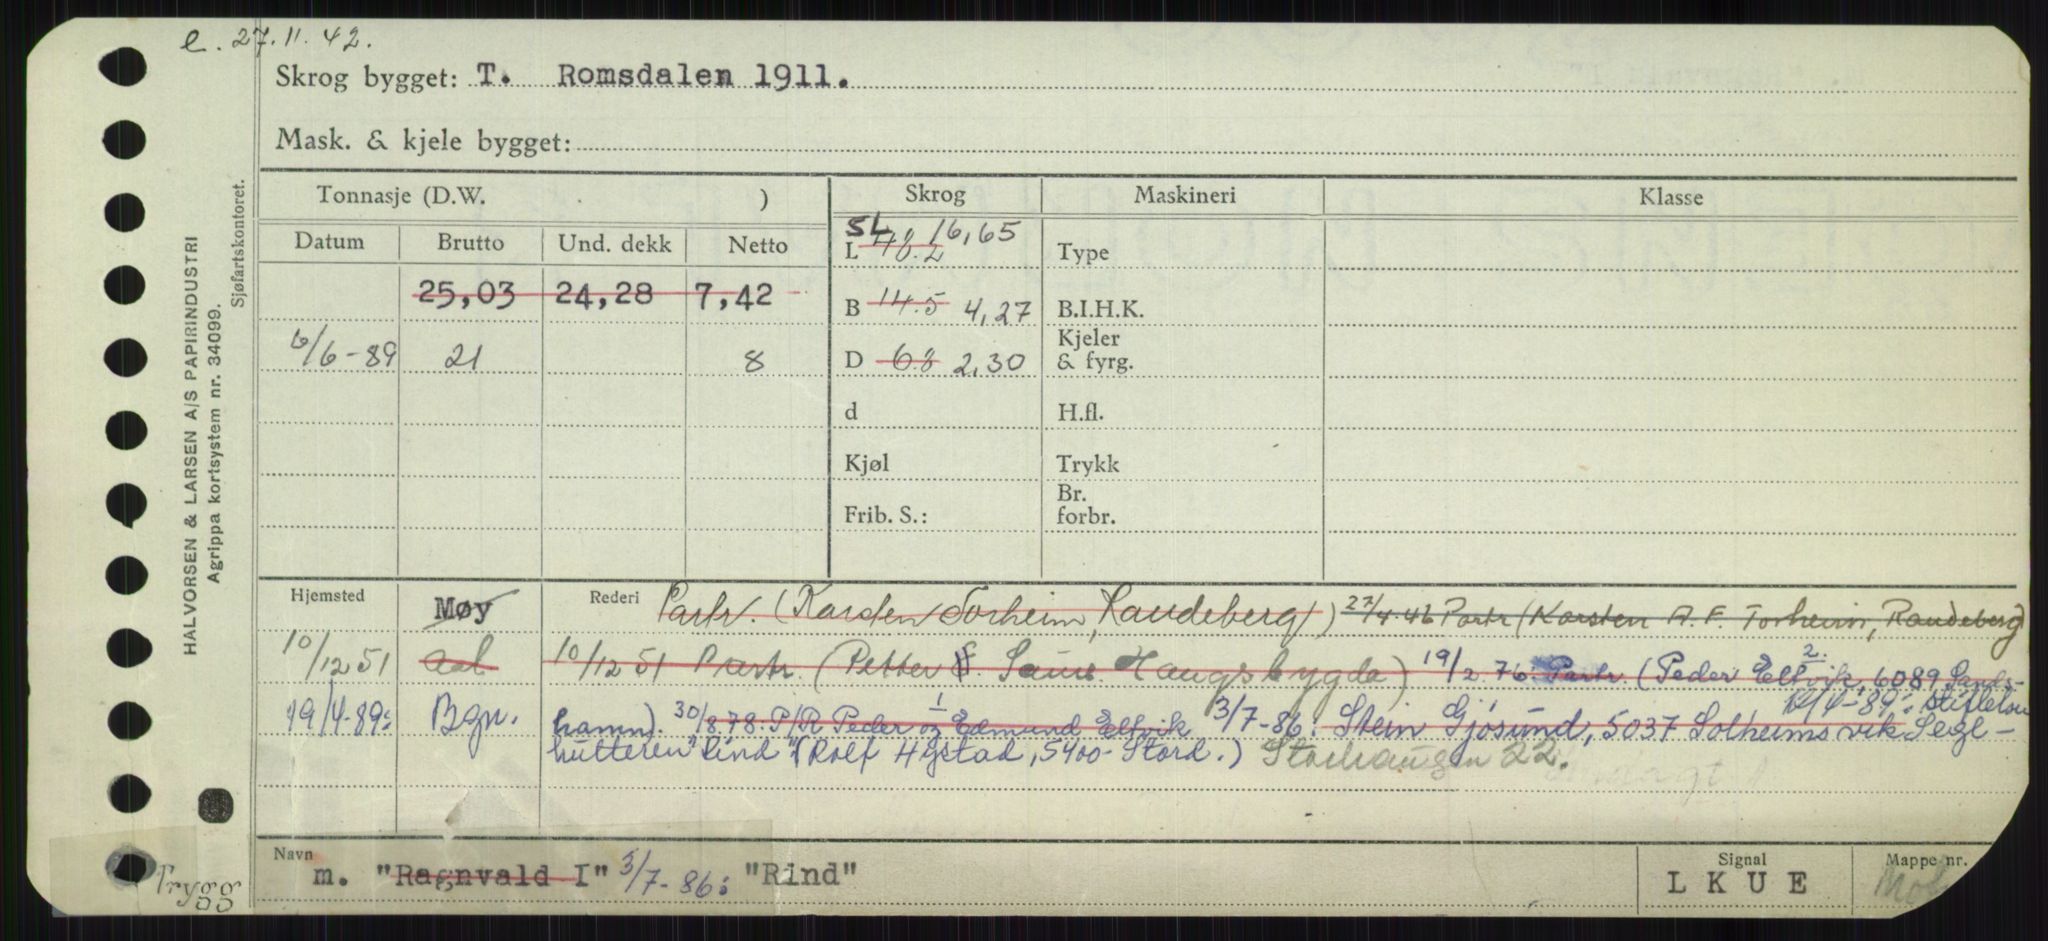 e. 27.11.42.
Skrog bygget: T. Romsdalen 1911.
Mask. & kjele bygget:
HALVORSEN & LARSEN A/S PAPIRINDUSTRI
Agrippa kortsystem nr. 34099.
Sjøfartskontoret.
Tonnasje (D.W. ) Skrog Maskineri Klasse
Datum Brutto Und. dekk Netto
SL 16,65
L 48.2 Type
25,03 24,28 7,42
B 14.5 4,27 B.I.H.K.
6/6-89 21 8
D 6.8 2,30 Kjeler & fyrg.
d H.fl.
Kjøl Trykk
Frib. S.: Br. forbr.
Hjemsted Møy Rederi Partr. (Karsten Torheim, Raudeberg) 27/4.46 Partr (Karsten A. F. Torheim, Raudeberg)
10/12 51 Aal 10/12 51 Partr. (Petter Haugsbygda) 19/2.76. Partr. (Peder Elsvik, 6089 Sands-
2.
12/4-89: Stiftelsen
19/4-89: Bgn. hamn). 30/8.78: P/R Peder og Edmund Elsvik 3/7-86: Stein Gjøsund, 5037 Solheimsvik Segl-
1
hutteren "Rind" (Rolf Hystad, 5400 Stord.) Storhaugen 22.
Navn Signal Mappe nr.
m. "Ragnvald I" 3/7-86: "Rind" LKUE
Trygg